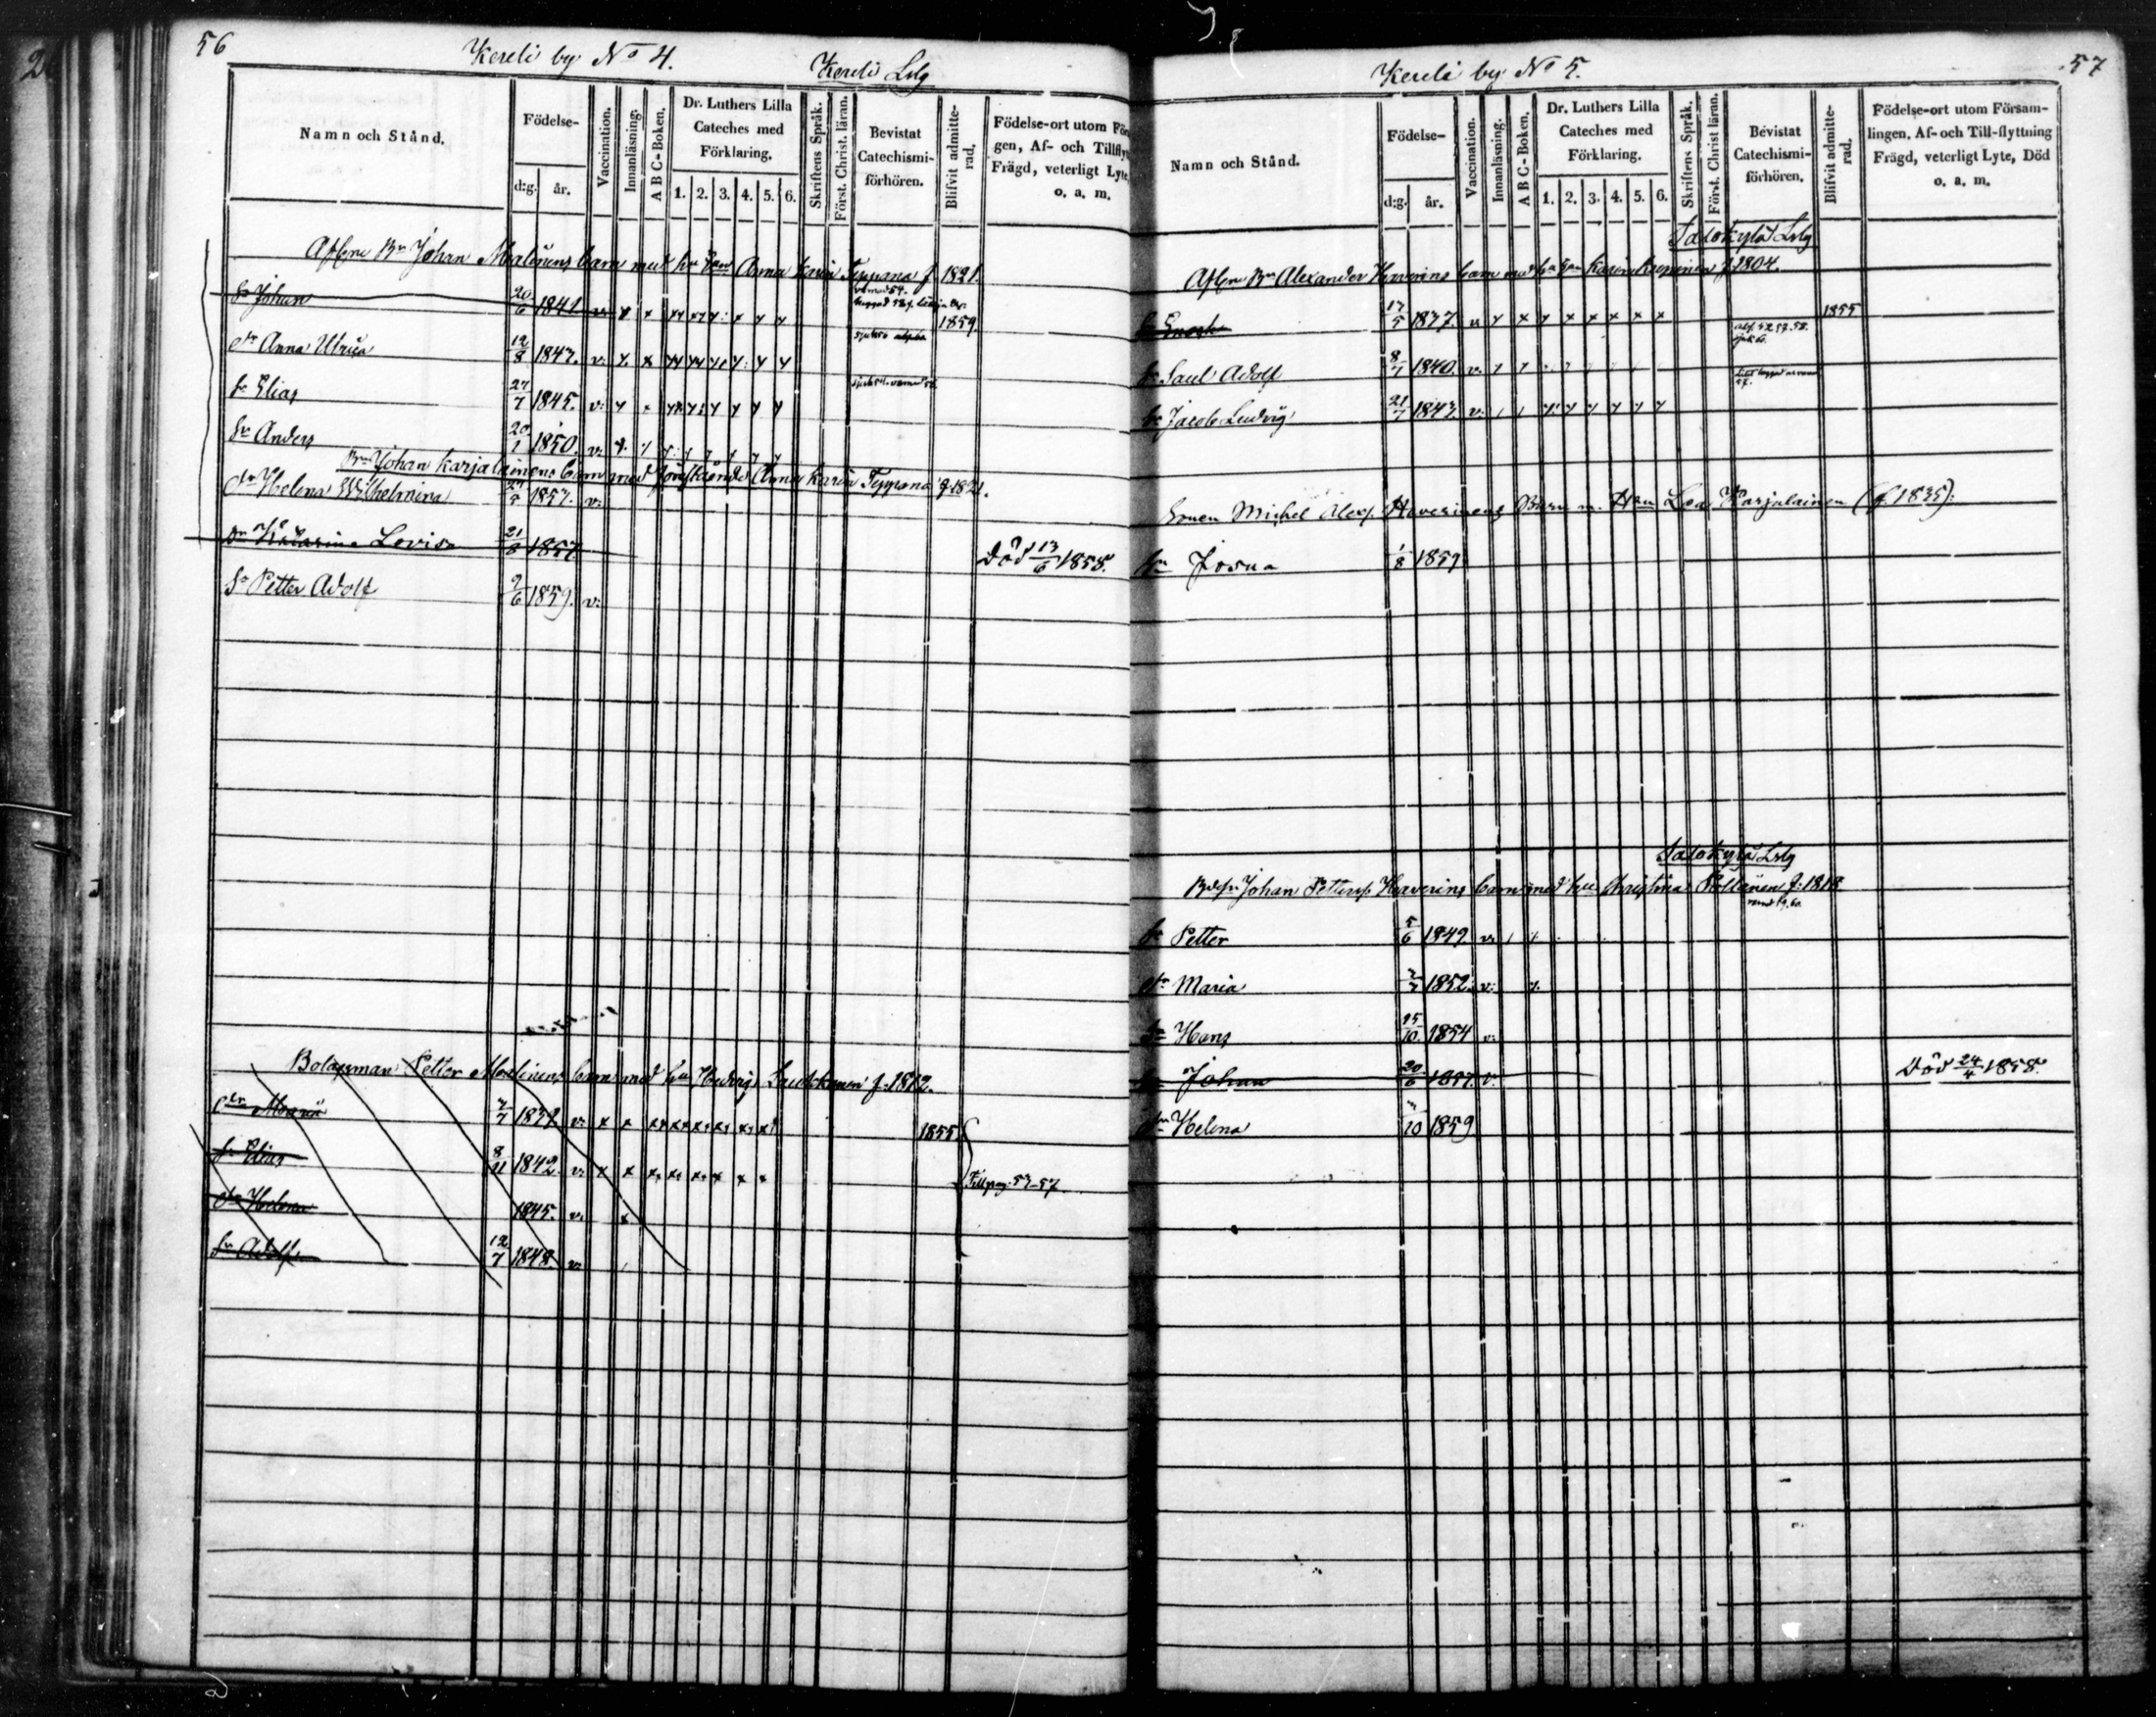 56
Kereli by No 4.
Kereli Lslg
Namn och Stånd.
Födelse-
d:g. år.
Vaccination.
Innanläsning.
A B C-Boken.
Dr. Luthers Lilla
Cateches med
Förklaring.
1. 2. 3. 4. 5. 6.
Skriftens Språk.
Först. Christ. läran.
Bevistat
Catechismi-
förhören.
Blifvit admitte-
rad.
Födelse-ort utom För
gen, Af- och Tillfly
Frägd, veterligt Lyte,
o. a. m.
Aflne Bn Johan Malinens barn med hu Anna Karin Teppana f 1821.
Sr Johan 20/6 1841 v. 1859
dr Anna Ulrica 12/8 1843. v.
Sr Elias 27/7 1845. v.
Sr Anders 20/1 1850. v.
Bn Johan Karjalainens barn med Anna Karin Teppana f. 1821.
dr Helena Wilhelmina 1857. v.
dr Katarina Lovisa 21/8 1857 Död 13/6 1858.
Sr Petter Adolf 2/6 1859. v.
Bolagsman Petter Malinens barn med hu Hedvig f. 1812.
dr Maria 1839. v. 1855
Sr Elias 8/11 1842. v.
Till pag. 57
dr Helena 1845. v.
Sr Adolf 12/7 1848. v.
57
Kereli by No 5.
Namn och Stånd.
Födelse-
d:g. år.
Vaccination.
Innanläsning.
A B C-Boken.
Dr. Luthers Lilla
Cateches med
Förklaring.
1. 2. 3. 4. 5. 6.
Skriftens Språk.
Först. Christ läran.
Bevistat
Catechismi-
förhören.
Blifvit admitte-
rad.
Födelse-ort utom Försam-
lingen, Af- och Till-flyttning
Frägd, veterligt Lyte, Död
o. a. m.
Salokylä Lslg
Aflne Bn Alexander Haverins barn med hu Karin f 1804.
Sr Enoch 17/5 1837. v. 1855
Sr Saul Adolf 8/7 1840. v.
Sr Jacob Ludvig 21/7 1843. v.
Sonen Michel Alexs. Haverinens Barn m. Hu Lea Karjalainen (f 1835):
Sn Josua 1/8 1859
Salokylä Lslg
Johan Petters Haverins barn med hu Christina f. 1818
Sr Petter 5/6 1849. v.
dr Maria 1852. v.
Sn Hans 15/10 1854 v.
Sn Johan 20/6 1857. v. Död 24/4 1858.
dr Helena 10 1859